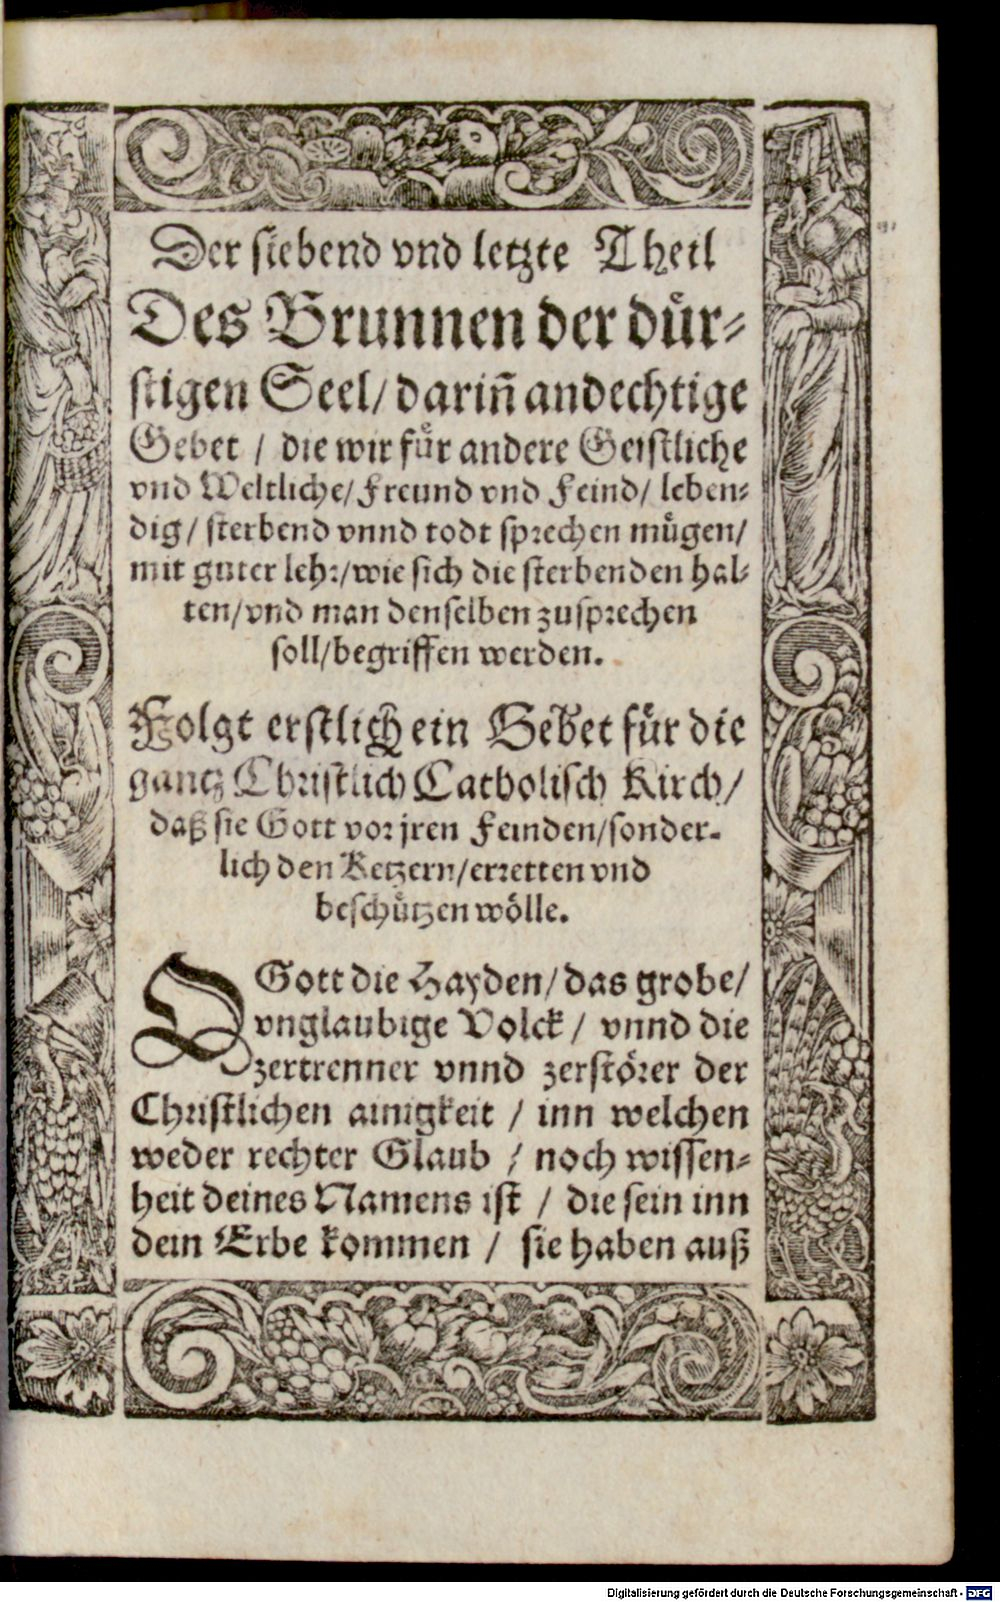 Der siebend vnd letzte Theil
Des Brunnen der dür⸗
stigen Seel/ dariñ andechtige
Gebet / die wir für andere Geistliche
vnd Weltliche/ Freund vnd Feind/ leben⸗
dig/ sterbend vnnd todt sprechen mügen/
mit guter lehr/ wie sich die sterbenden hal⸗
ten/ vnd man denselben zusprechen
soll/ begriffen werden.
Folgt erstlich ein Gebet für die
gantz Christlich Catholisch Kirch/
daß sie Gott vor jren Feinden/ sonder⸗
lich den Ketzern/ erretten vnd
beschützen wölle.
O Gott die Hayden/ das grobe/
vnglaubige Volck / vnnd die
zertrenner vnnd zerstörer der
Christlichen ainigkeit / inn welchen
weder rechter Glaub / noch wissen⸗
heit deines Namens ist / die sein inn
dein Erbe kommen / sie haben auß
Digitalisierung gefördert durch die Deutsche Forschungsgemeinschaft - DFG